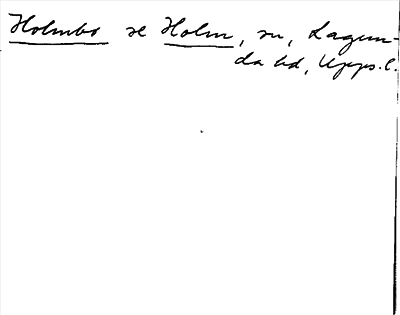 Holmbo se Holm, sn, Lagun-
da hd, Upps. l.